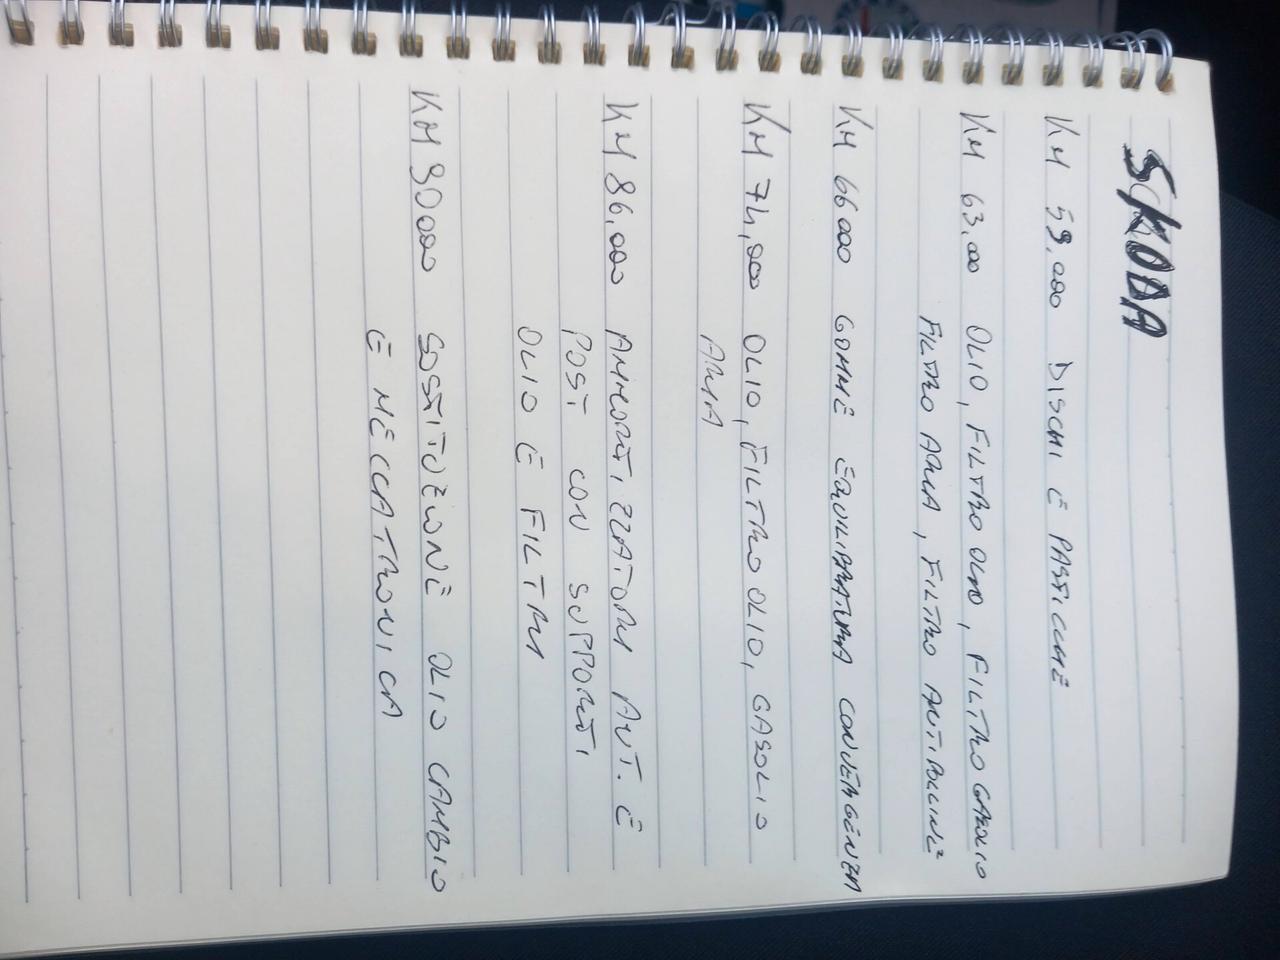 S/KODA
KM 59,000 DISCHI E PASTICCHE
KM 63,00 OLIO, FILTRO OLIO, FILTRO GASOLIO
FILTRO ARIA, FILTRO ANTIPOLLINE
KM 66000 GOMME EQUILIBRATURA CONVERGENZA
KM 74,000 OLIO, FILTRO OLIO, GASOLIO
ARIA
KM 86,000 AMMORTIZZATORI ANT. E
POST CON SUPPORTI
OLIO E FILTRI
KM 90000 SOSTITUZIONE OLIO CAMBIO
E MECCATRONICA